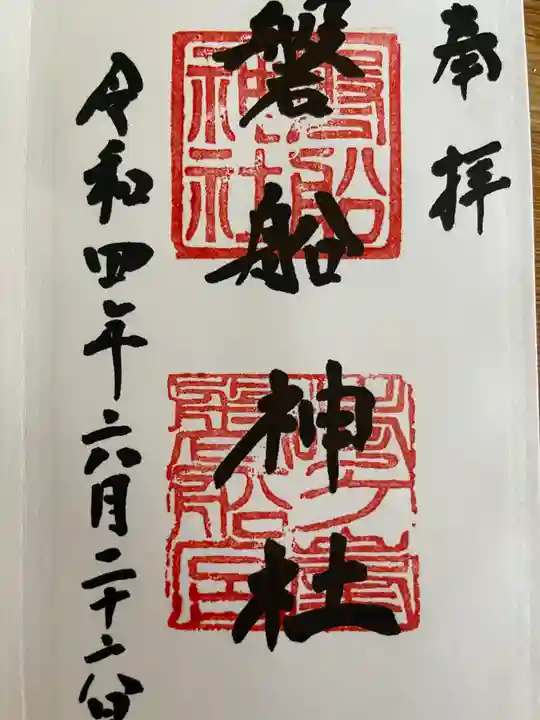 奉拝
磐船神社
磐船
神社
令和四年六月二十六日